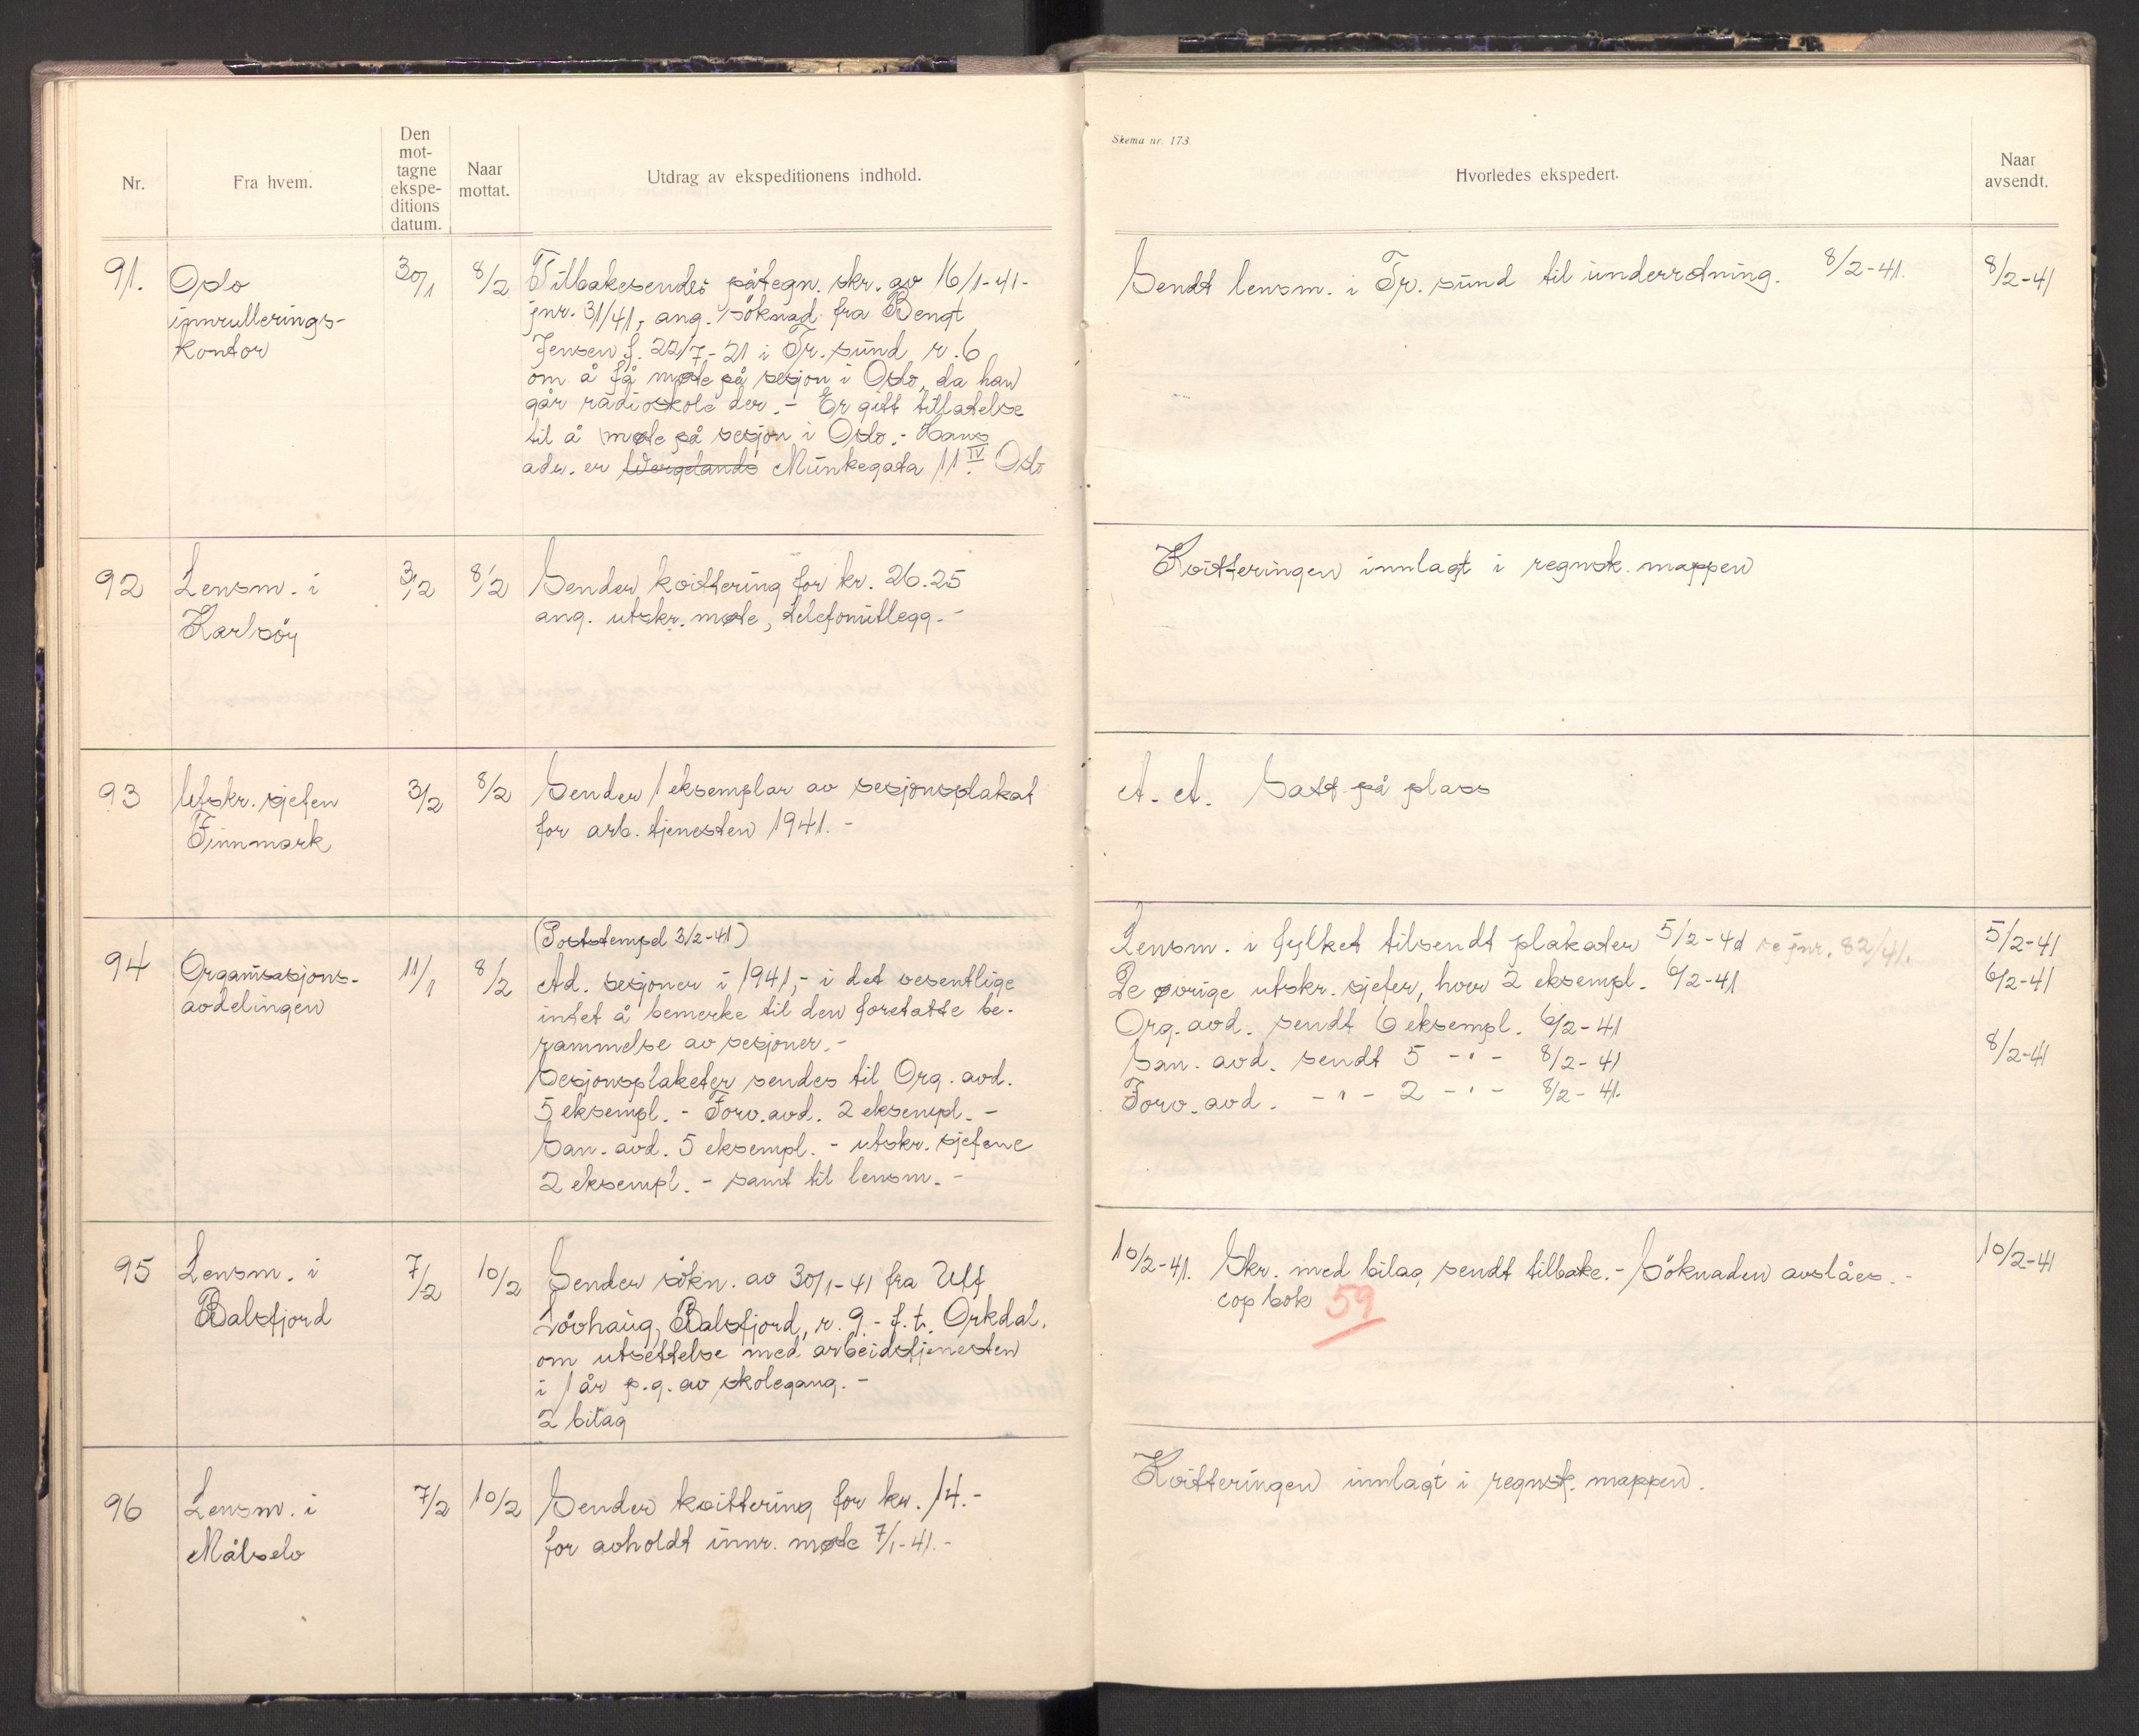 Nr.
Fra hvem.
Den mot-
tagne
ekspe-
ditions
datum.
Naar
mottat.
Utdrag av ekspeditionens indhold.
Skema nr. 173.
Hvorledes ekspedert.
Naar
avsendt.
91. Oslo 30/1 8/2 Tilbakesendes påtegn. skr. av 16/1-41-
innrullerings- jnr. 31/41, ang. søknad fra Bengt
kontor Jensen f. 22/7-21 i Tr.sund r. 6
om å få møte på sesjon i Oslo, da han
går radioskole der. - Er gitt tillatelse
til å møte på sesjon i Oslo. - Hans
adr. er Wergelands Munkegata 11 IV Oslo
Sendt lensm. i Tr. sund til underretning. 8/2-41. 8/2-41
92 Lensm. i 3/2 8/2 Sender kvittering for kr. 26.25
Karlsöy ang. utskr. møte, telefonutlegg. -
Kvitteringen innlagt i regnsk. mappen
93 Utskr. sjefen 3/2 8/2 Sender 1 eksemplar av sesjonsplakat
Finnmark for arb. tjenesten 1941. -
A. A. Satt på plass
(Poststempel 3/2-41)
94 Organisasjons- 11/1 8/2 Ad. sesjoner i 1941, - i det vesentlige
avdelingen intet å bemerke til den foretatte be-
rammelse av sesjoner. -
Sesjonsplakater sendes til Org. avd.
5 eksempl. - Forv. avd. 2 eksempl. -
San. avd. 5 eksempl. - utskr. sjefene
2 eksempl. - samt til lensm. -
Lensm. i fylket tilsendt plakater 5/2-41 se jnr. 82/41. 5/2-41
De øvrige utskr. sjefer, hver 2 eksempl. 6/2-41 6/2-41
Org. avd. sendt 6 eksempl. 6/2-41
San. avd. sendt 5 -"- 8/2-41 8/2-41
Forv. avd. -"- 2 -"- 8/2-41.
95 Lensm. i 7/2 10/2 Sender søkn. av 30/1-41 fra Ulf
Balsfjord Lövhaug, Balsfjord, r. 9 - f.t. Orkdal.
om utsettelse med arbeidstjenesten
i 1 år p.g. av skolegang. -
2 bilag
10/2-41. Skr. med bilag sendt tilbake. - Söknaden avslåes. - 10/2-41
cop bok 59
96 Lensm. i 7/2 10/2 Sender kvittering for kr. 14.-
Målselv for avholdt innr. møte 7/1-41. -
Kvitteringen innlagt i regnsk. mappen.